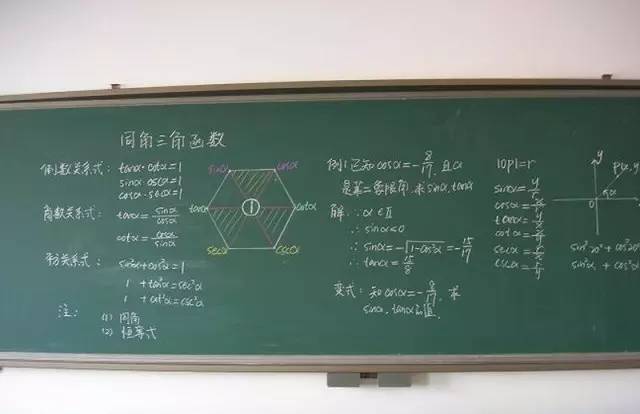 同角三角函数
倒数关系式: tanα·cotα=1
sinα·cscα=1
cosα·secα=1
商数关系式: tanα=sinα/cosα
cotα=cosα/sinα
平方关系式: sin²α+cos²α=1
1+tan²α=sec²α
1+cot²α=csc²α
注: (1) 同角
(2) 恒等式
sinα
cosα
tanα
①
cotα
secα
cscα
例: 已知cosα=-8/17, 且α
是第三象限角, 求sinα, tanα
解: ∵α∈Ⅲ
∴sinα<0
∴sinα=-√1-cos²α=-15/17
∴tanα=15/8
变式: 知cosα=-8/17, 求
sinα, tanα的值.
|OP|=r
sinα=y/r
cosα=x/r
tanα=y/x
cotα=x/y
secα=r/x
cscα=r/y
y
P(x,y
α
0
sin²30°+cos²
sin²α+cos²